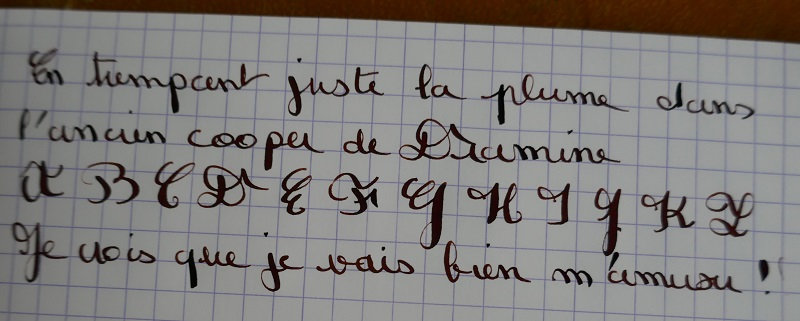 En trempant juste la plume dans
l'ancien cooper de Dramine
A B C D E F G H I J K L
Je vois que je vais bien m'amuser !